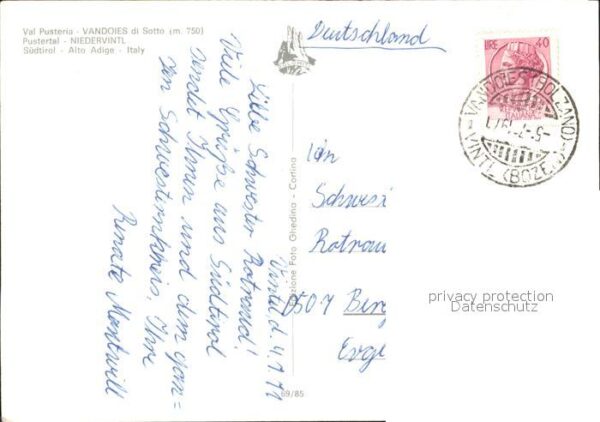 Val Pusteria - VANDOIES di Sotto (m. 750)
Pustertal - NIEDERVINTL
Südtirol - Alto Adige - Italy
Deutschland
LIRE 40
VANDOIES (BOLZANO)
VINTL (BOZEN)
Vintl, d. 4.7.71
Liebe Schwester Rotraud!
Viele Grüße aus Südtirol
sendet Ihnen und dem gan=
zen Schwesternkreis, Ihre
Renate Mantwill
Edizione Foto Ghedina - Cortina
69/85
An
Schwes
Rotrau
8501 Burg
Evge
privacy protection
Datenschutz